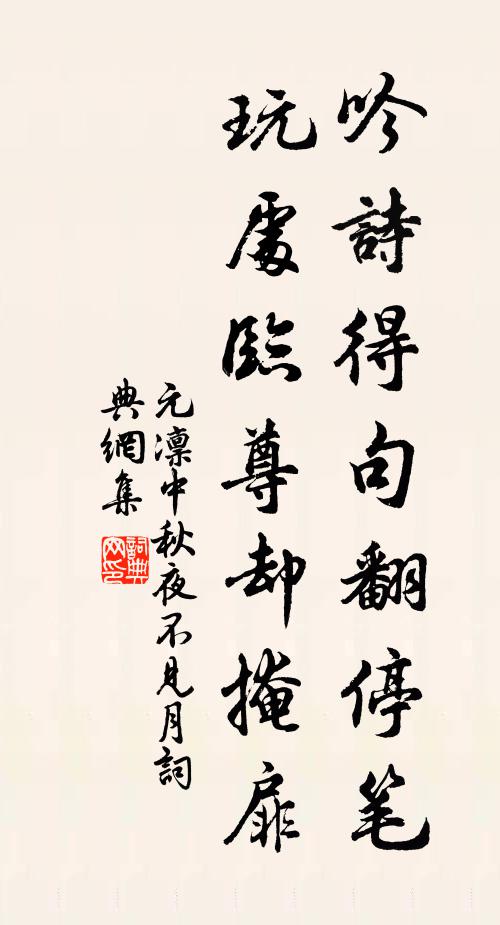 吟詩得句翻停笔
玩處臨尊却掩扉
元凛中秋夜不見月詞
典網集
詞典
网印